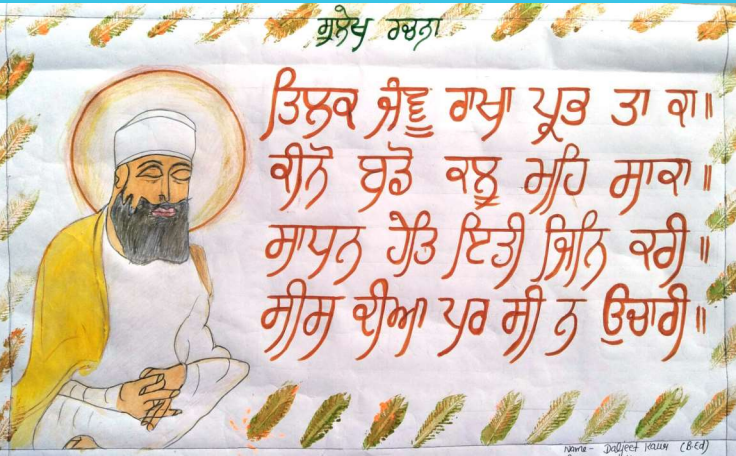 ਸੁਲੇਖ ਰਚਨਾ
ਤਿਲਕ ਜੰਞੂ ਰਾਖਾ ਪ੍ਰਭ ਤਾ ਕਾ॥
ਕੀਨੋ ਬਡੋ ਕਲੂ ਮਹਿ ਸਾਕਾ॥
ਸਾਧਨ ਹੇਤਿ ਇਤੀ ਜਿਨਿ ਕਰੀ॥
ਸੀਸ ਦੀਆ ਪਰ ਸੀ ਨ ਉਚਾਰੀ॥
Name- Daljeet Kaur (B.Ed)